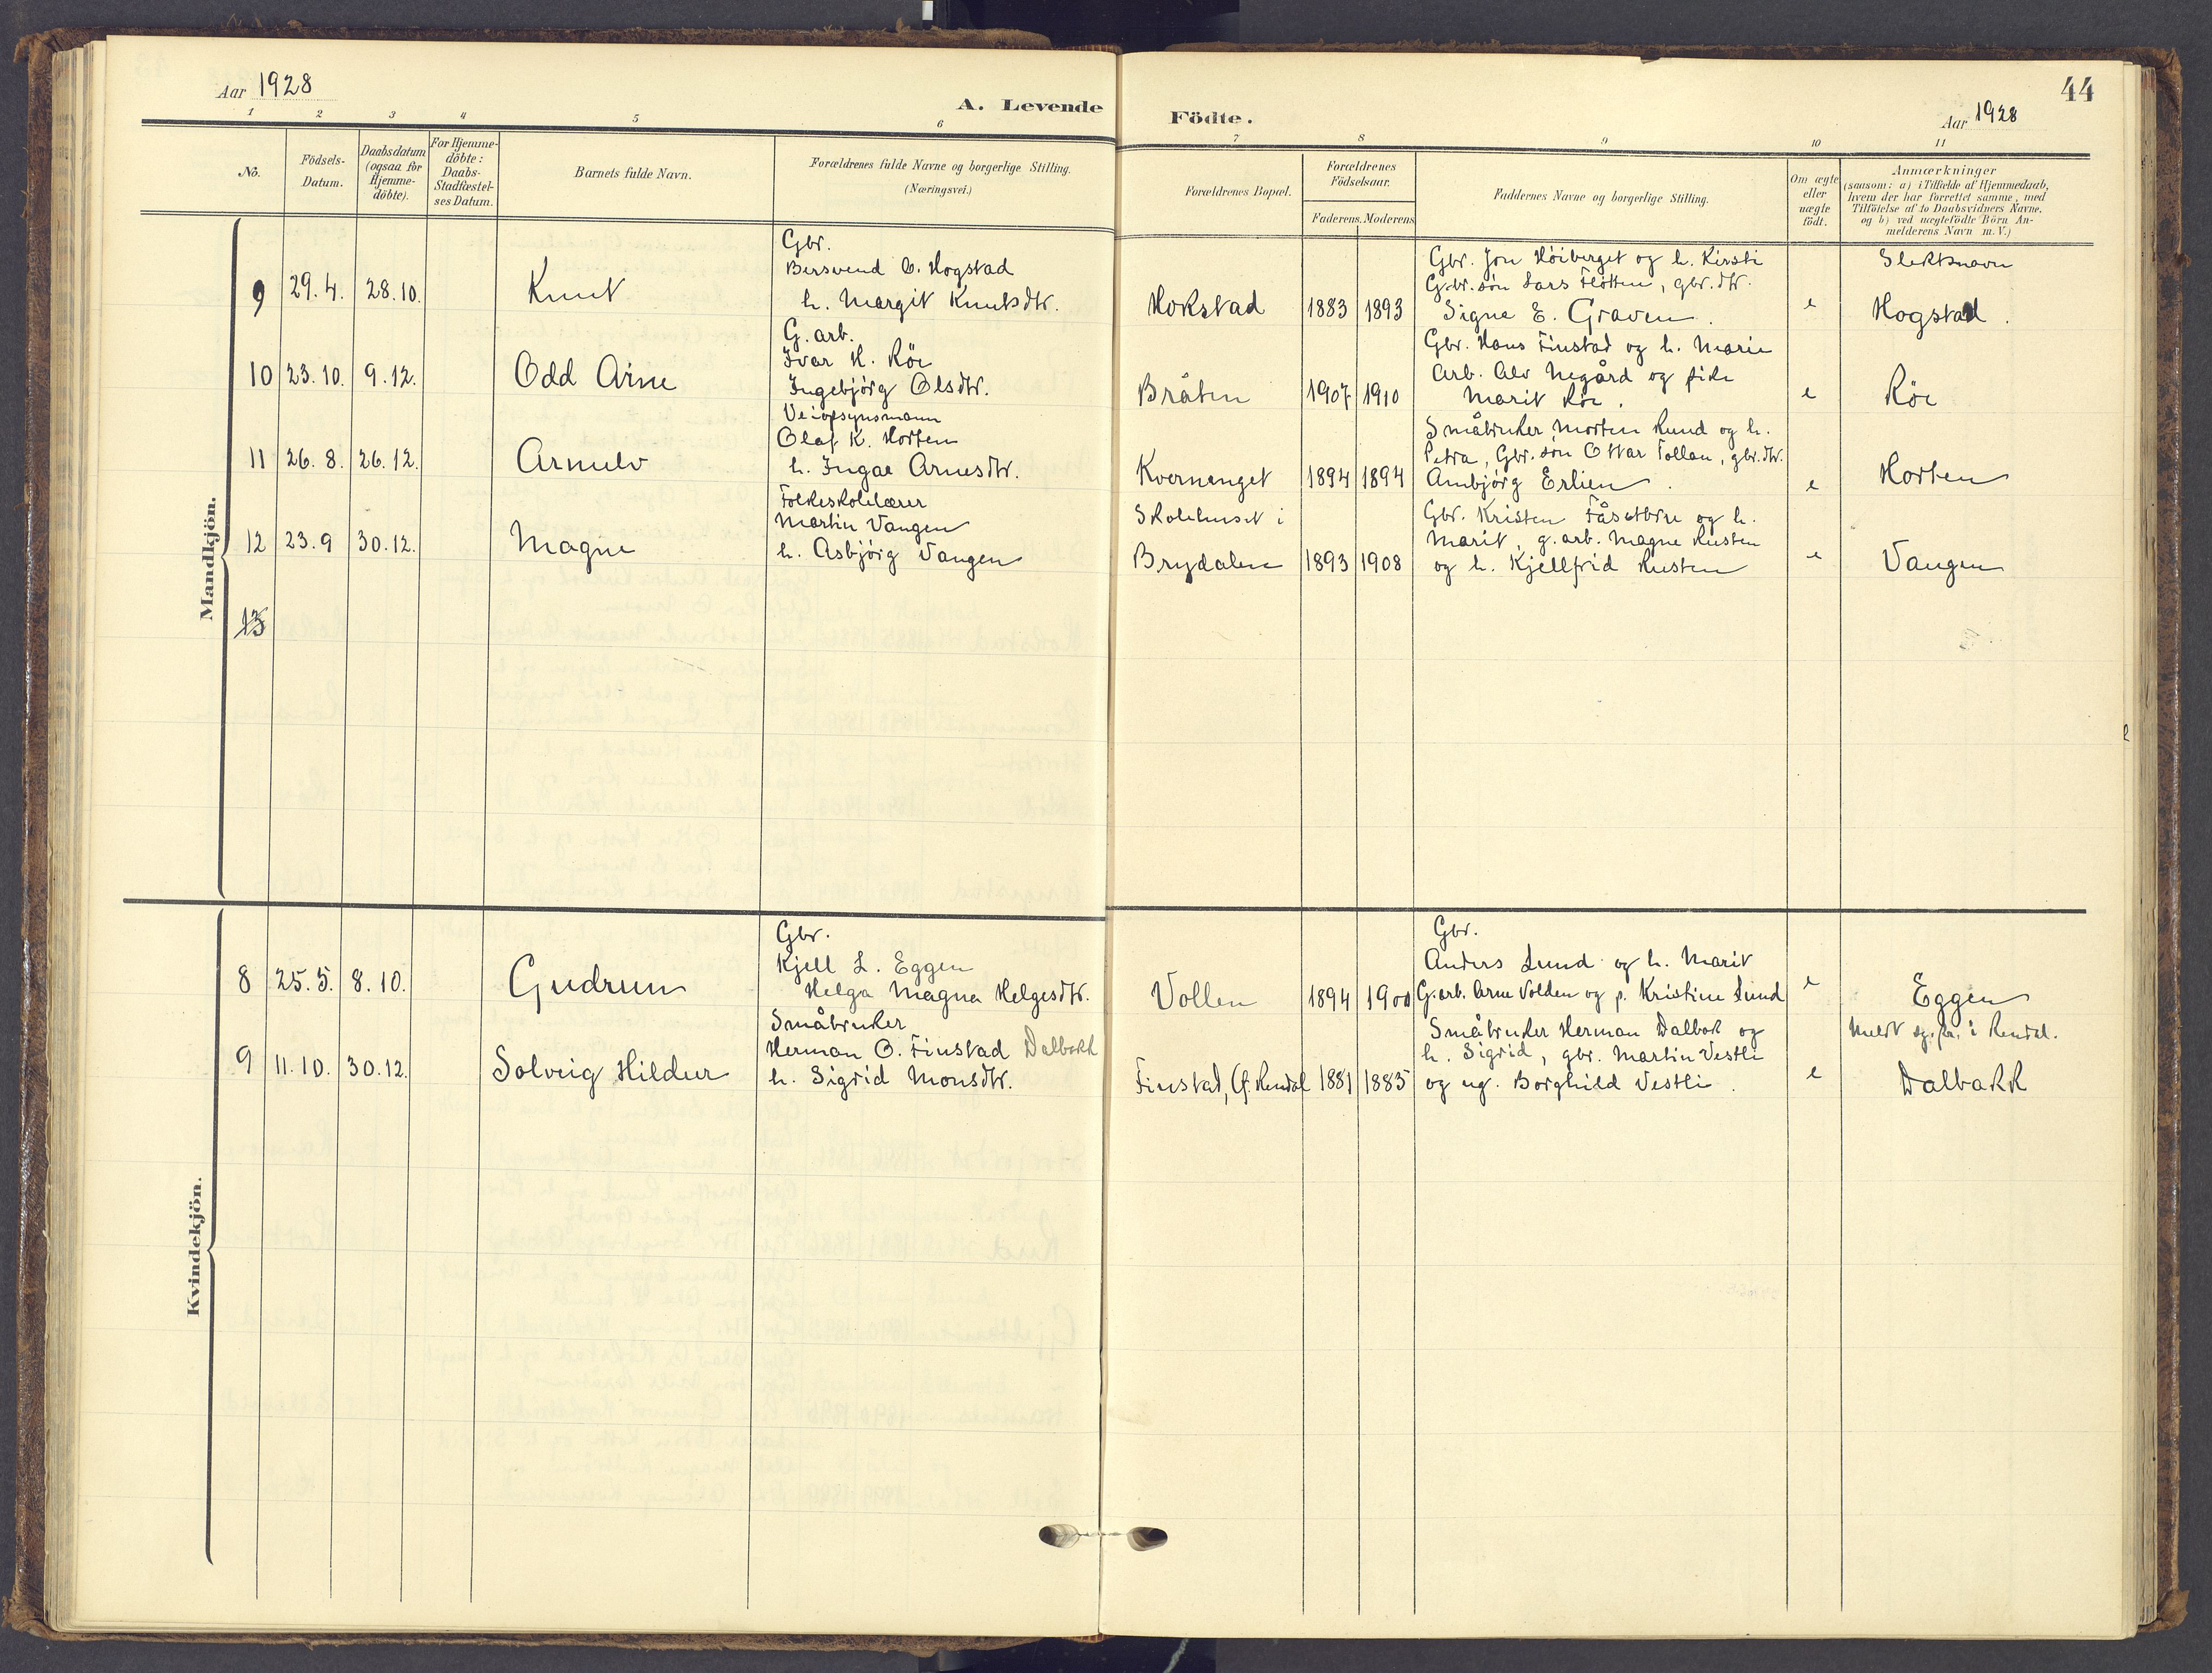 Aar 1928
A. Levende
Födte.
Aar 1928
44
1 2 3 4 5 6 7 8 9 10 11
No.
Födsels-
Datum.
Daabsdatum
(ogsaa for
Hjemme-
döbte).
For Hjemme-
döbte:
Daabs-
Stadfæstel-
ses Datum.
Barnets fulde Navn.
Forældrenes fulde Navne og borgerlige Stilling.
(Næringsvei.)
Forældrenes Bopæl.
Forældrenes
Födselsaar.
Faderens. Moderens
Faddernes Navne og borgerlige Stilling.
Om ægte
eller
uægte
födt.
Anmærkninger
(saasom: a) i Tilfælde af Hjemmedaab,
hvem der har forrettet samme, med
Tilföielse af to Daabsvidners Navne.
og b) ved uægtefödte Börn An-
melderens Navn m. V.)
Mandkjön.
9 29.4. 28.10. Knut
Gbr.
Bersvend O. Hogstad
h. Margit Knutsdtr.
Hokstad 1883 1893
Gbr. Jon Höiberget og h. Kirsti
Gbr. sön Lars Flötten, gbr. dtr.
Signe E. Graven.
e
Slektsnavn
Hogstad.
10 23.10. 9.12. Odd Arne
G. arb.
Ivar H. Röe
Ingebjörg Olsdtr.
Bråten 1907 1910
Gbr. Hans Finstad og h. Marie
Arb. Alv Negård og pike
Marit Röe.
e Röe
11 26.8. 26.12. Arnulv
Veiopsynsmann
Olaf K. Horten
h. Ingae Arnesdtr.
Kvernenget 1894 1894
Småbruker Morten Rund og h.
Petra, Gbr. sön Ottar Tollan, gbr. dtr.
Ambjörg Erlien.
e Horten
12 23.9 30.12. Magne
Folkeskolelærer
Martin Vangen
h. Asbjörg Vangen
Skolehuset i
Brydalen 1893 1908
Gbr. Kristen Fåsetbru og h.
Marit, g. arb. Magne Rusten
og h. Kjellfrid Rusten
e Vangen
13
Kvindekjön.
8 25.5. 8.10. Gudrun
Gbr.
Kjell L. Eggen
Helga Magna Helgesdtr.
Vollen 1894 1900
Gbr.
Anders Lund og h. Marit
G. arb. Arne Volden og p. Kristine Lund
e Eggen
9 11.10. 30.12. Solveig Hildur
Småbruker
Herman O. Finstad Dalbakk
h. Sigrid Monsdtr.
Finstad, Rendal 1881 1885
Småbruker Herman Dalbak og
h. Sigrid, gbr. Martin Vestli
og ug. Borghild Vestli.
e
Meldt i Rendal.
Dalbakk